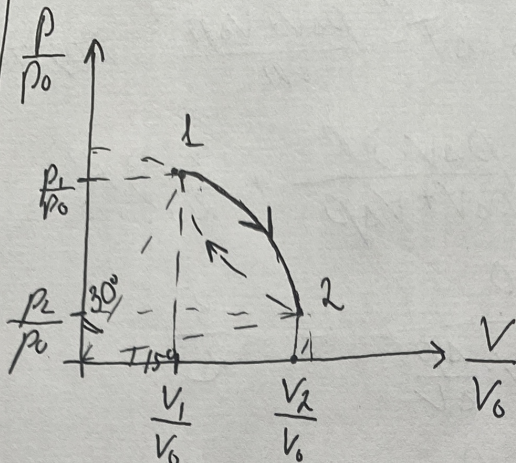 p/p₀
1
p₁/p₀
2
p₂/p₀
30°
15°
V/V₀
V₁/V₀
V₂/V₀